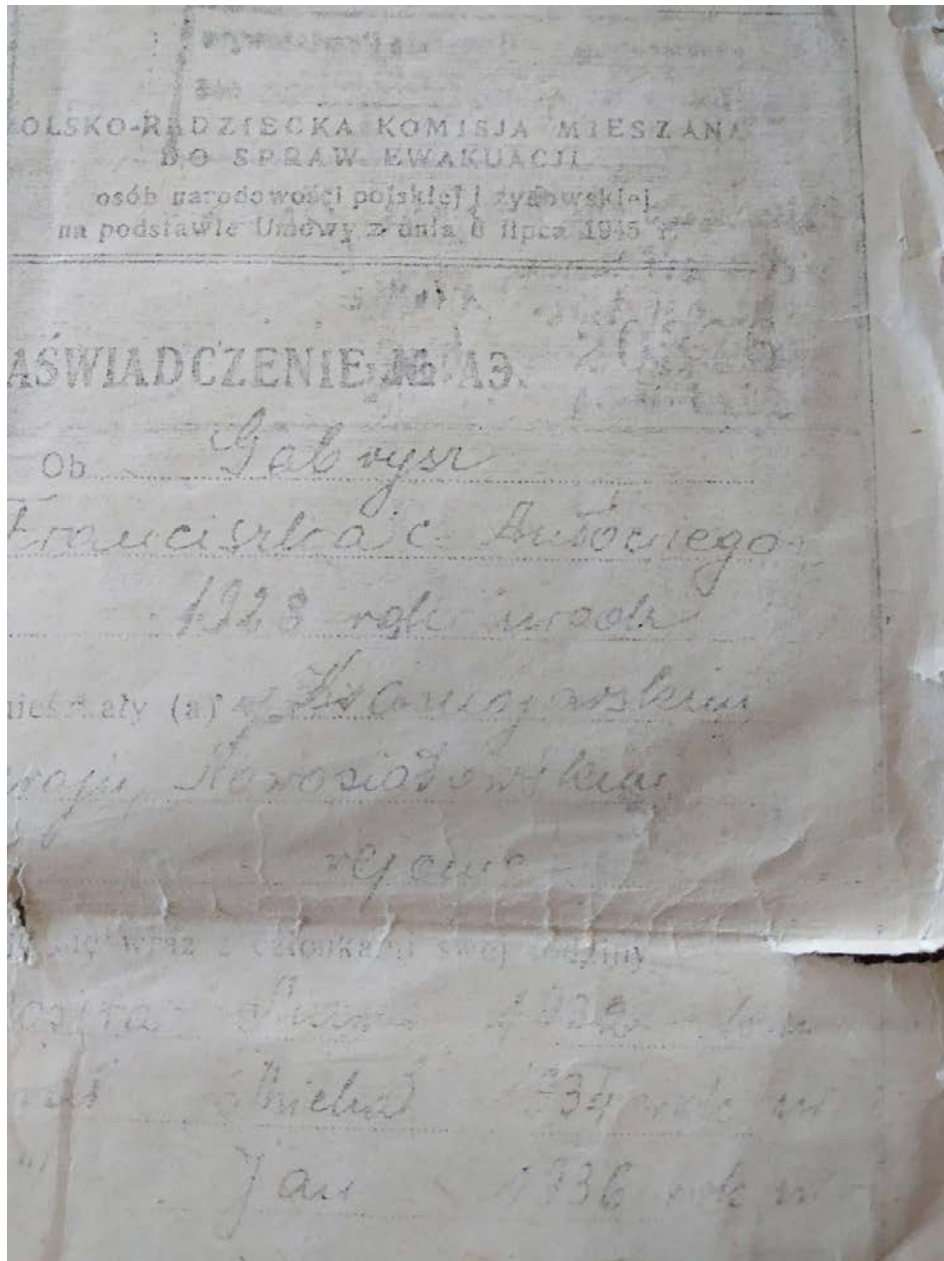 OLSKO-RADZIECKA KOMISJA MIESZANA
DO SPRAW EWAKUACJI
osób narodowości polskiej i żydowskiej
na podstawie Umowy z dnia 6 lipca 1945 r.
AŚWIADCZENIE № AЭ.
Ob. Gabrysz
Franciszka c. Antoniego
1923 rok urodz
mieszkały (a) w
raju, Nowosiołowskim
rejonie
wraz z członkami swej rodziny
siostra 1932 rok u
Michał 1934 rok ur
" Jan 1936 rok ur